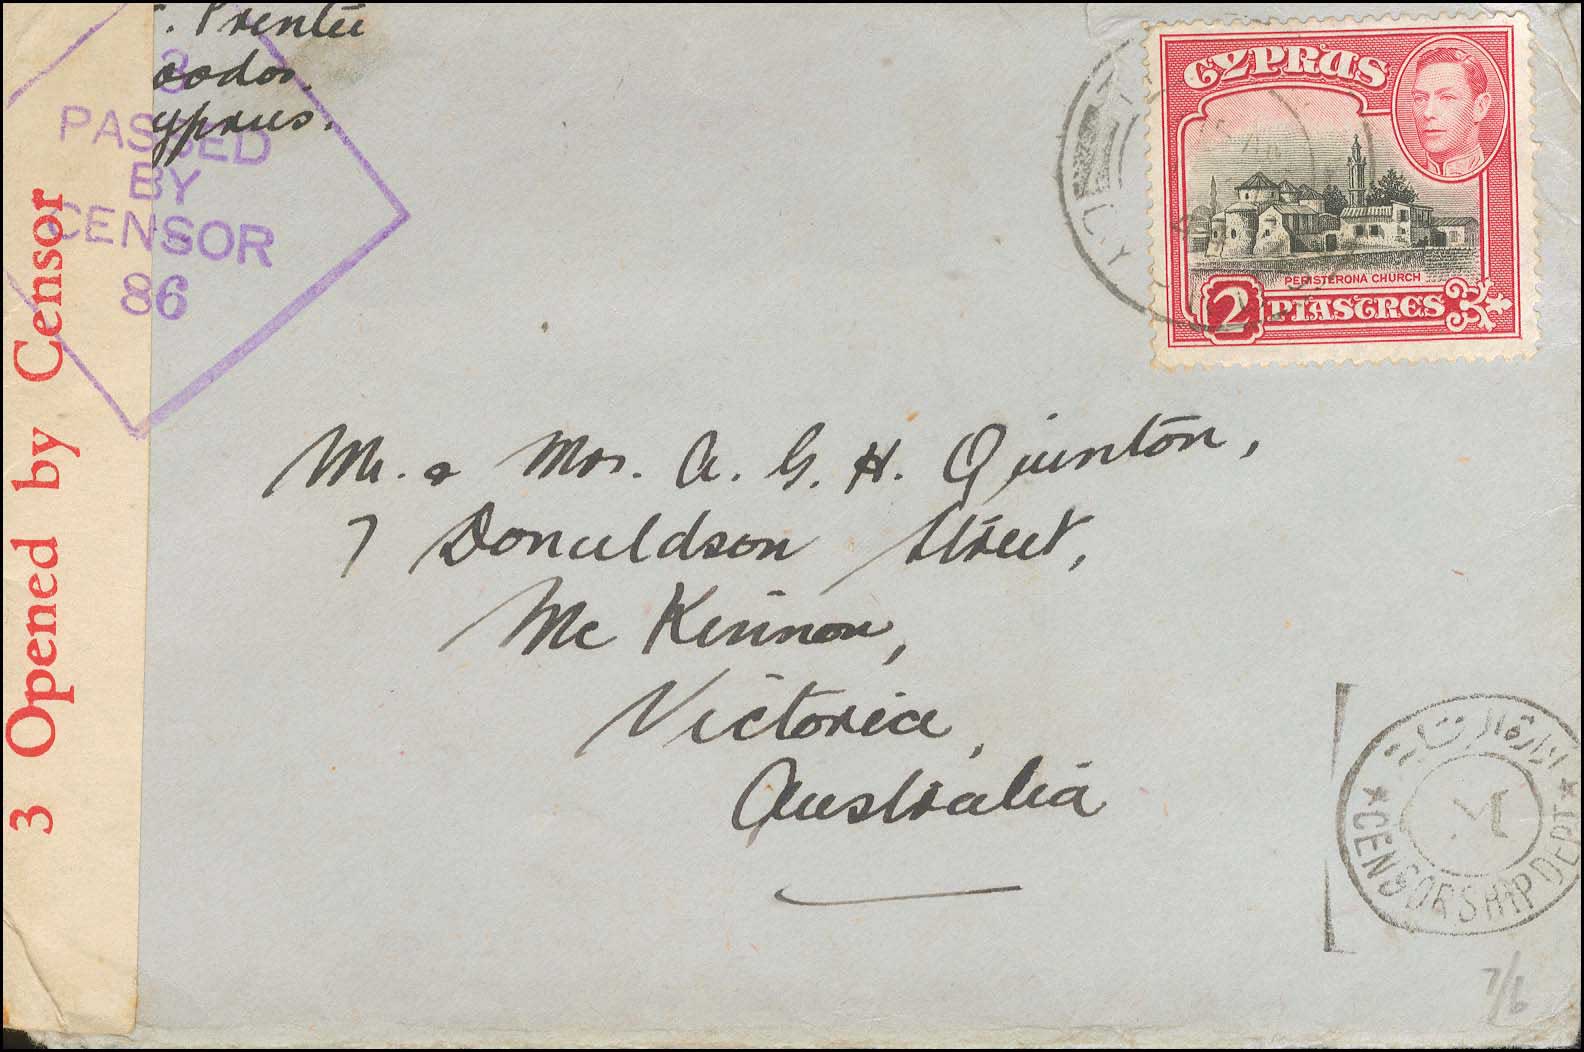 . Prentie
oodos,
yprus.
3
PASSED
BY
CENSOR
86
3 Opened by Censor
CYPRUS
PERISTERONA CHURCH
2 PIASTRES
Mr. & Mrs. A. G. H. Quinton,
7 Donaldson Street,
Mc Kinnon,
Victoria,
Australia
ادارة
★ CENSORSHIP DEPT ★
7/6